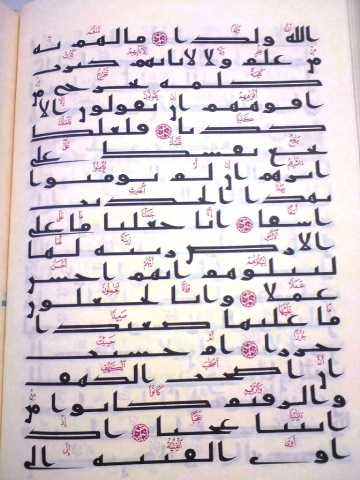 الله ولدا ۝ ما لهم به
من علم ولا لابائهم كبرت
كلمة تخرج من
افوههم ان يقولون الا
كذبا ۝ فلعلك
بخع نفسك على
اثرهم ان لم يومنوا
بهذا الحديث
اسفا ۝ انا جعلنا ما على
الارض زينة لها
لنبلوهم ايهم احسن
عملا ۝ وانا لجعلون
ما عليها صعيدا
جرزا ۝ ام حسبت
ان اصحب الكهف
والرقيم كانوا من
ايتنا عجبا ۝ اذ
اوى الفتية الى